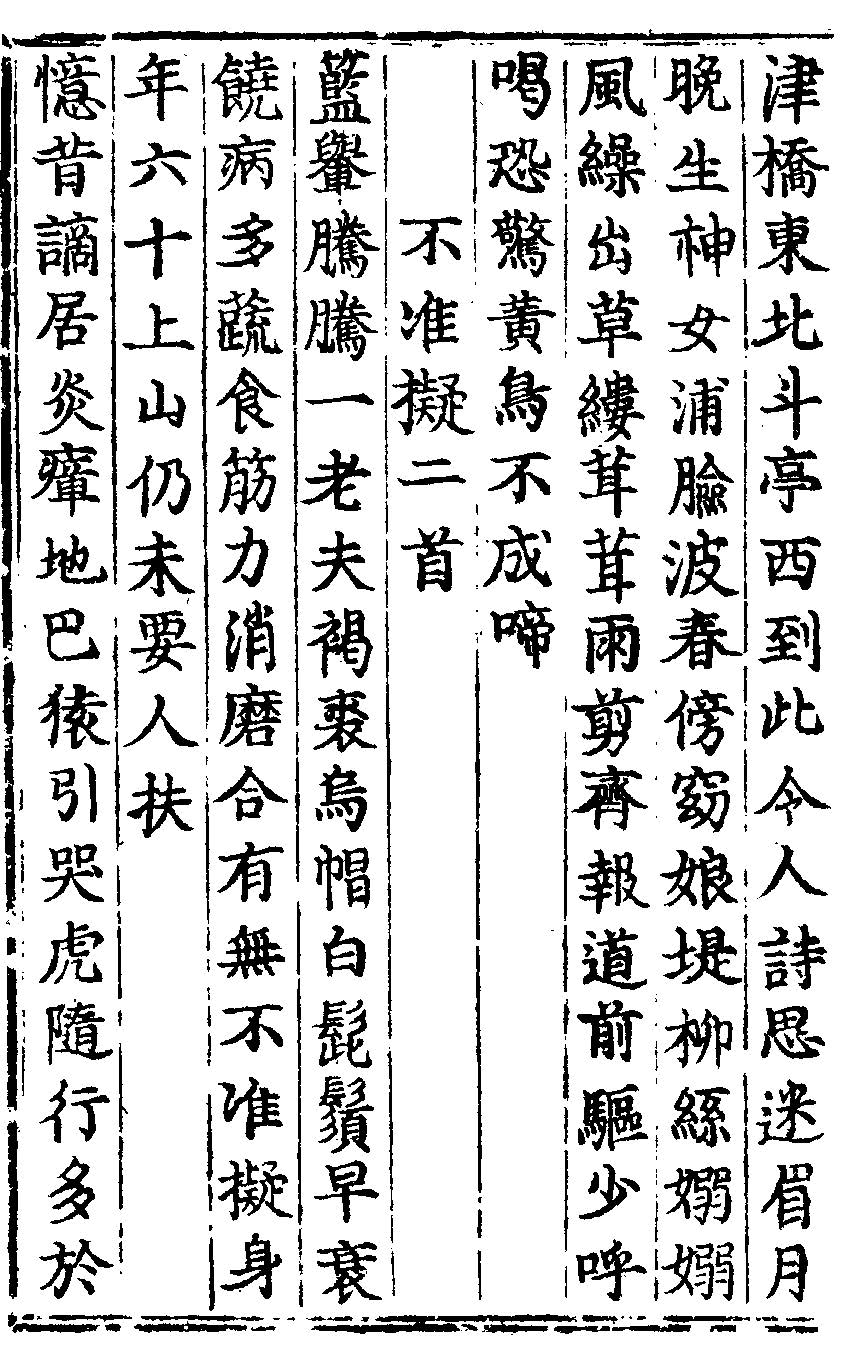 津橋東北斗亭西到此令人詩思迷眉月
晚生神女浦臉波春傍窈娘堤柳絲嫋嫋
風繰出草縷茸茸雨剪齊報道前驅少呼
喝恐驚黃鳥不成啼
不准擬二首
籃轝騰騰一老夫褐裘烏帽白髭鬚早衰
饒病多蔬食筋力消磨合有無不准擬身
年六十上山仍未要人扶
憶昔謫居炎瘴地巴猿引哭虎隨行多於